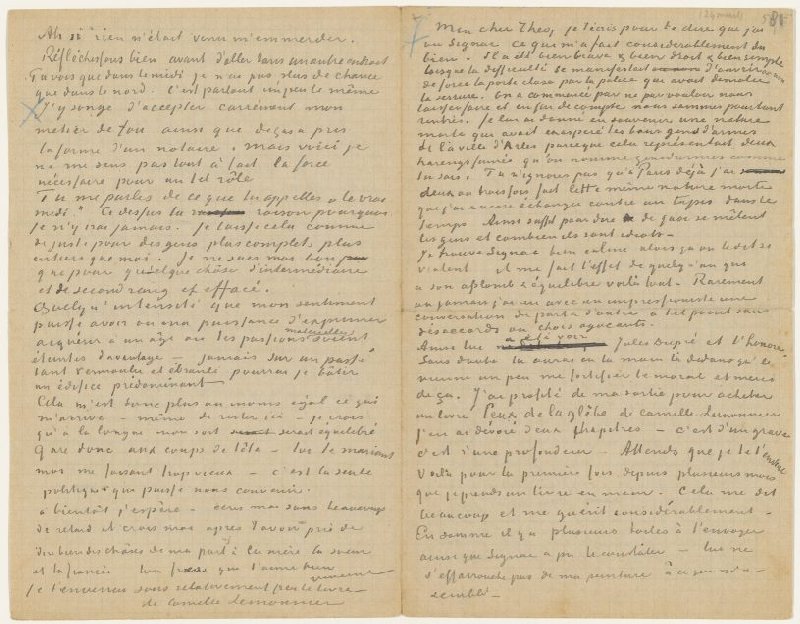 Ah si rien n'était venu m'emmerder.
Réfléchissons bien avant d'aller dans un autre endroit
Tu vois que dans le midi je n'ai pas plus de chance
que dans le nord. C'est partout un peu le même
J'y songe d'accepter carrément mon
métier de fou ainsi que degas a pris
la forme d'un notaire. mais voici je
ne me sens pas tout à fait la force
nécessaire pour un tel rôle
Tu me parles de ce que tu appelles „le vrai
midi". Ci dessus la raison pourquoi
je n'y irai jamais. Je laisse cela comme
de juste pour des gens plus complets, plus
entiers que moi. Je ne suis moi bon
que pour quelque chose d'intermédiaire
et de second rang et effacé.
Quelqu'intensité que mon sentiment
puisse avoir ou ma puissance d'exprimer
acquérir à un age où les passions matérielles soient
éteintes davantage – jamais sur un passé
tant vermoulu et ébranlé pourrai je bâtir
un édifice prédominant
Cela m'est donc plus ou moins égal ce qui
m'arrive – même de rester ici – je crois
qu'à la longue mon sort serait équilibré
Gare donc aux coups de tête – toi te mariant
moi me faisant trop vieux – c'est la seule
politique que puisse nous convenir.
à bientôt j'espère – écris moi sans beaucoup
de retard et crois moi après t'avoir prié de
dire bien des choses de ma part à la mère la soeur
et la fiancée ton frère qui t'aime bien
Je t'enverrai sous relativement peu le livre
de camille Lemonnier
Mon cher Theo, je t'écris pour te dire que j'ai
vu Signac ce qui m'a fait considérablement du
bien. Il a été bien brave & bien droit & bien simple
lorsque la difficulté se manifestait d'ouvrir ou non
de force la porte close par la police qui avait démolie
la serrure. on a commencé par ne pas vouloir nous
laisser faire et en fin de compte nous sommes pourtant
rentrés. Je lui ai donné en souvenir une nature
morte qui avait exaspéré les bons gend'armes
de la ville d'Arles parceque cela représentait deux
harengs fumés qu'on nomme gendarmes comme
tu sais. Tu n'ignores pas qu'à Paris déjà j'ai
deux ou trois fois fait cette même nature morte
que j'ai encore échangé contre un tapis dans le
temps Ainsi suffit pour dire de quoi se mêlent
les gens et combien ils sont idiots –
Je trouve Signac bien calme alors qu'on le dit si
violent il me fait l'effet de quelqu'un qui
a son aplomb & équilibre voilà tout. Rarement
ou jamais j'ai eu avec un impressionniste une
conversation de part & d'autre à tel point sans
désaccords ou chocs agaçants.
Ainsi lui a été voir Jules Dupré et l'honore
Sans doute tu auras eu la main là dedans qu'il
vienne un peu me fortifier le moral et merci
de ça. J'ai profité de ma sortie pour acheter
un livre Ceux de la glèbe de camille Lemonnier
J'en ai dévoré deux chapitres – c'est d'un grave
c'est d'une profondeur – Attends que je te l'envoie
Voilà pour la première fois depuis plusieurs mois
que je prends un livre en main. Cela me dit
beaucoup et me guérit considérablement –
En somme il y a plusieurs toiles à t'envoyer
ainsi que Signac a pu le constater – lui ne
s'effarouche pas de ma peinture à ce qui m'a
semblé –